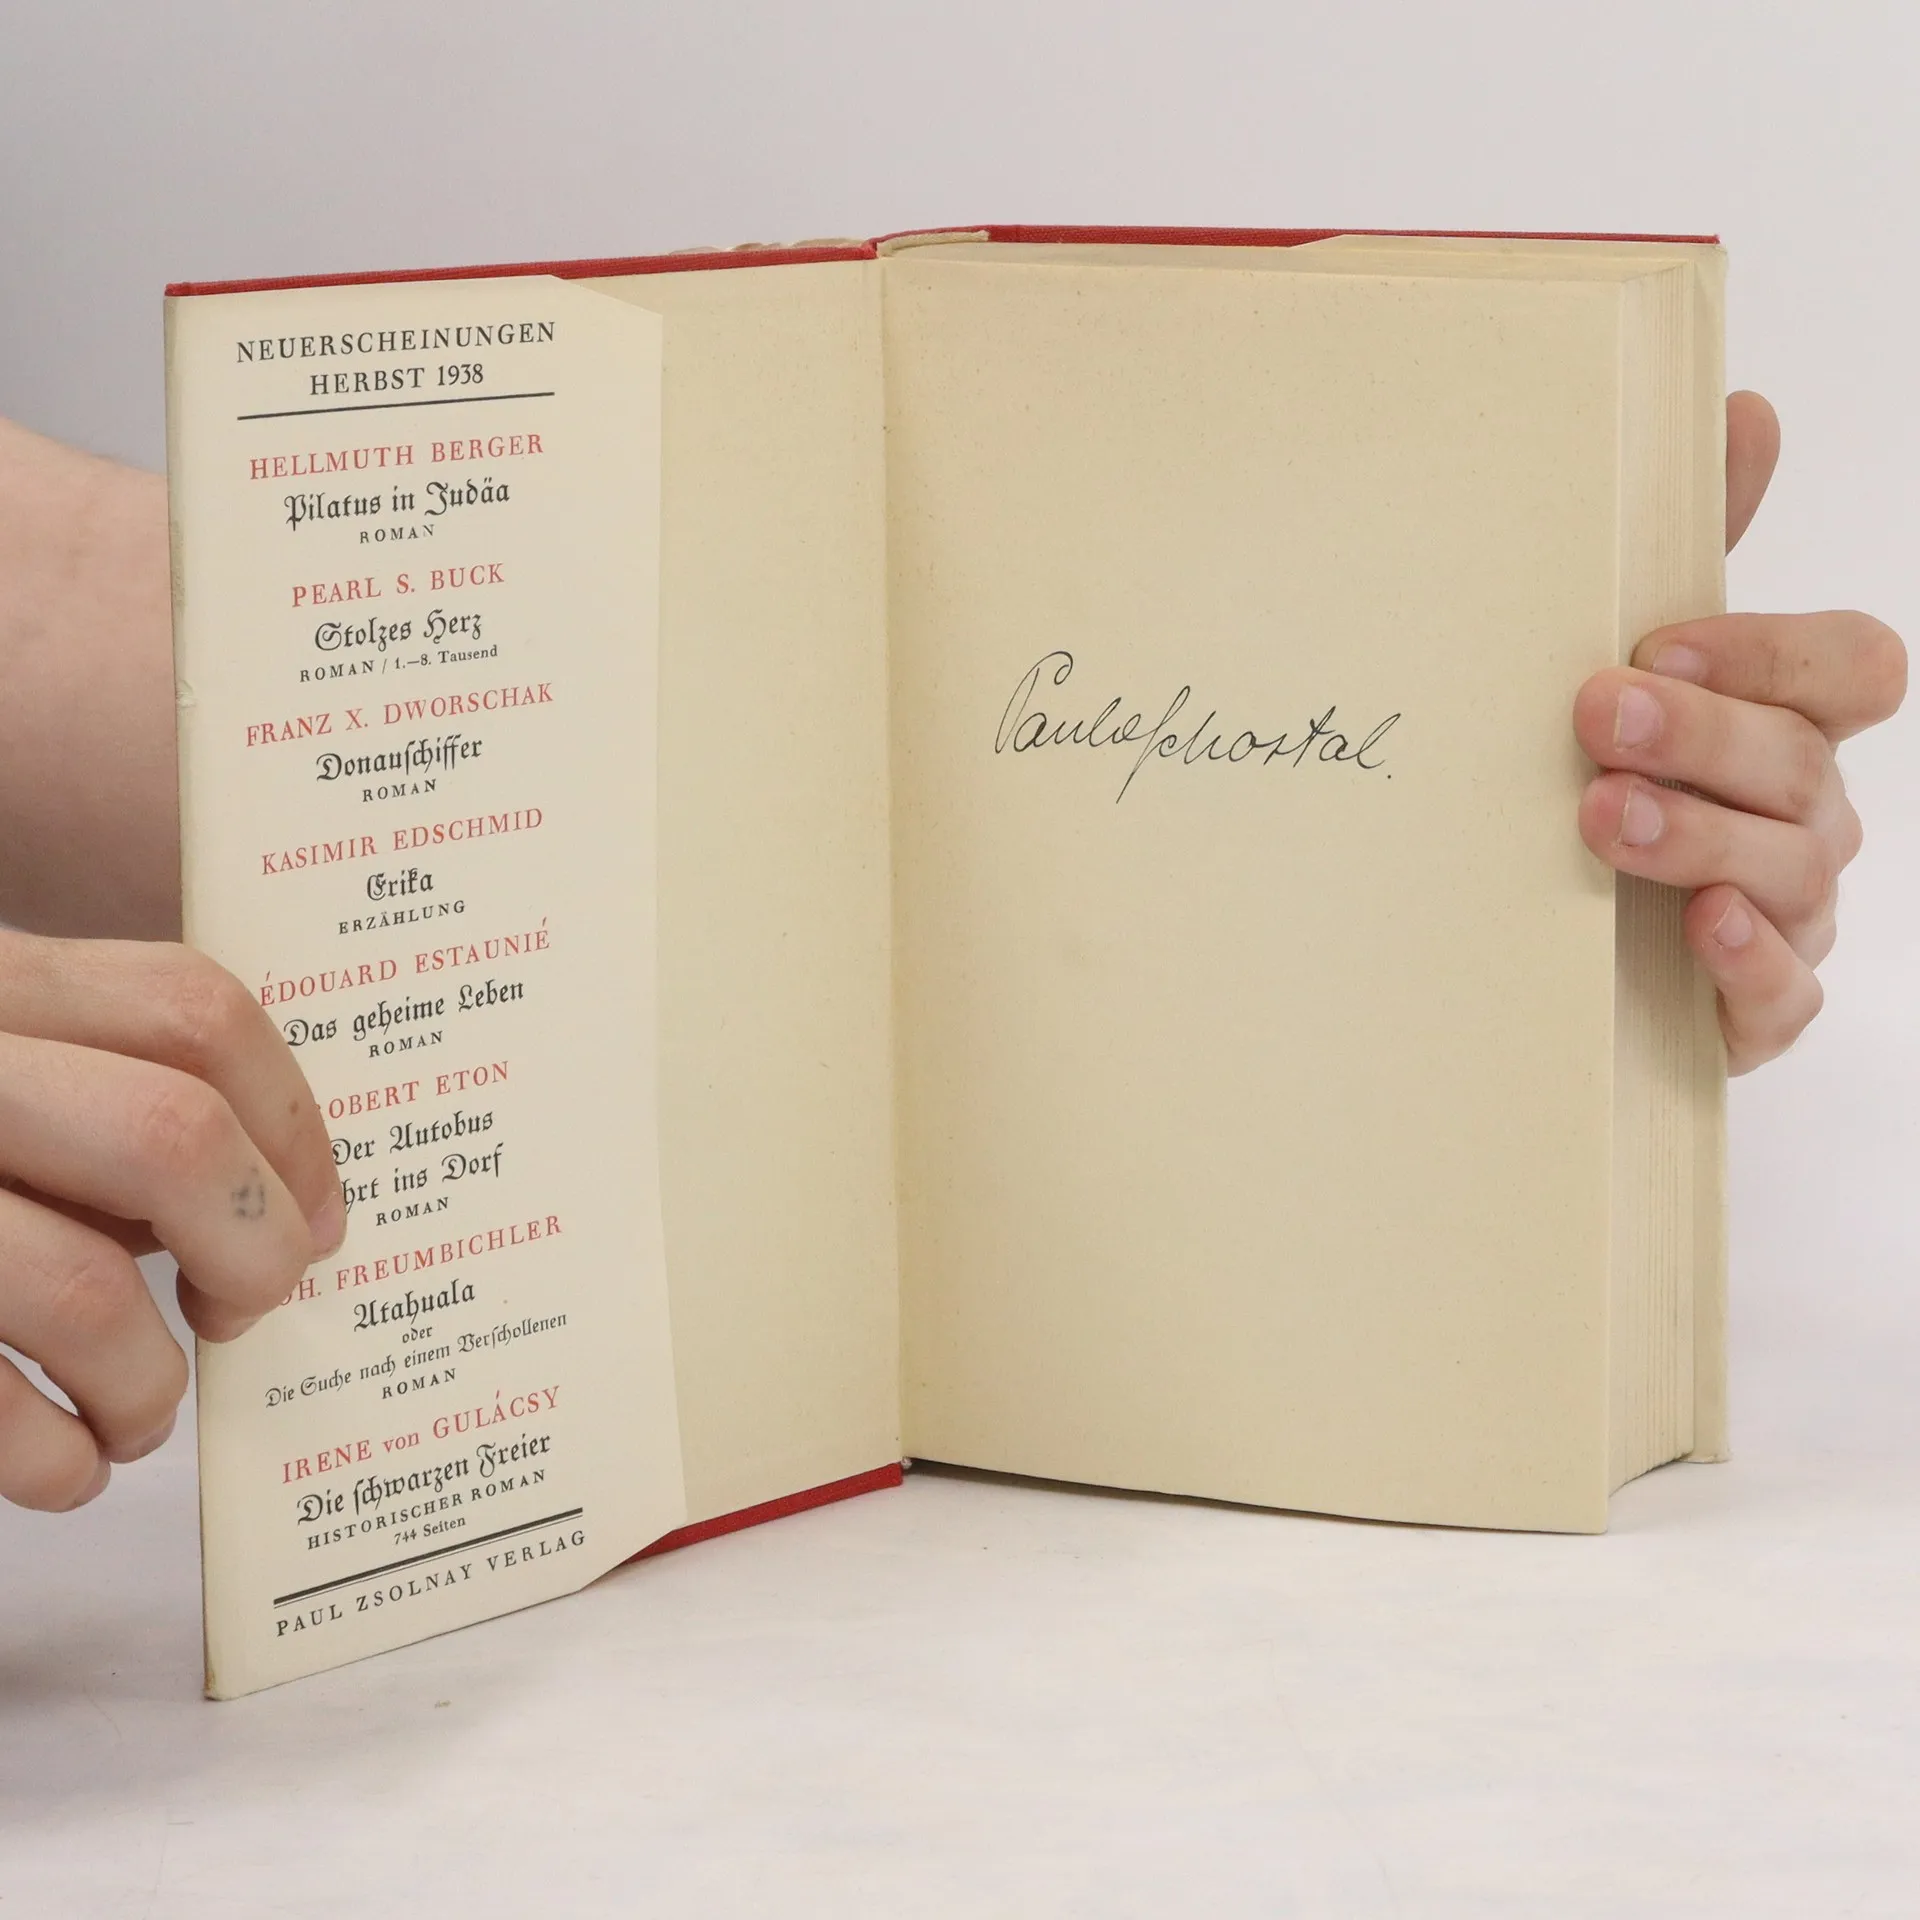 NEUERSCHEINUNGEN
HERBST 1938
HELLMUTH BERGER
Pilatus in Judäa
ROMAN
PEARL S. BUCK
Stolzes Herz
ROMAN / 1.–8. Tausend
FRANZ X. DWORSCHAK
Donauſchiffer
ROMAN
KASIMIR EDSCHMID
Erika
ERZÄHLUNG
ÉDOUARD ESTAUNIÉ
Das geheime Leben
ROMAN
OBERT ETON
Der Autobus
hrt ins Dorf
ROMAN
OH. FREUMBICHLER
Atahuala
oder
Die Suche nach einem Verſchollenen
ROMAN
IRENE von GULÁCSY
Die ſchwarzen Freier
HISTORISCHER ROMAN
744 Seiten
PAUL ZSOLNAY VERLAG